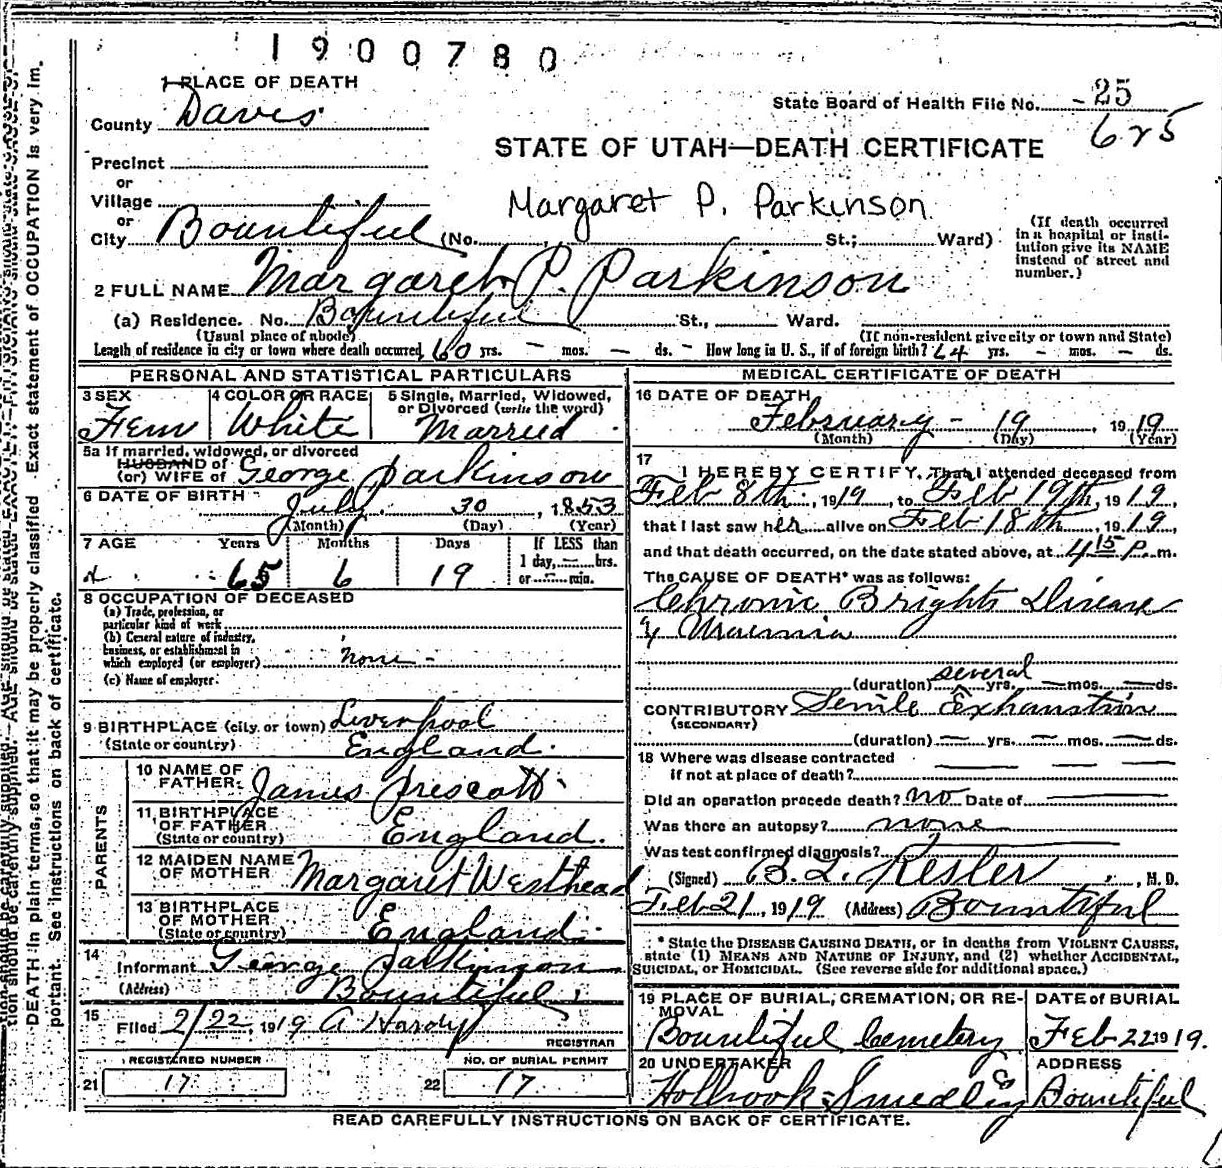 1900780
1 PLACE OF DEATH
County Davis
State Board of Health File No. 25
625
STATE OF UTAH—DEATH CERTIFICATE
Precinct
or
Village
or
City Bountiful (No. , St.; Ward)
Margaret P. Parkinson
(If death occurred
in a hospital or insti-
tution give its NAME
instead of street and
number.)
2 FULL NAME Margaret P. Parkinson
(a) Residence. No. Bountiful St., Ward.
(Usual place of abode) (If non-resident give city or town and State)
Length of residence in city or town where death occurred 60 yrs. – mos. – ds. How long in U. S., if of foreign birth? 64 yrs. – mos. – ds.
PERSONAL AND STATISTICAL PARTICULARS
3 SEX
Fem
4 COLOR OR RACE
White
5 Single, Married, Widowed,
or Divorced (write the word)
Married
5a If married, widowed, or divorced
HUSBAND of
(or) WIFE of George Parkinson
6 DATE OF BIRTH July 30, 1853
(Month) (Day) (Year)
7 AGE Years Months Days If LESS than
1 day, — hrs.
65 6 19 or — min.
8 OCCUPATION OF DECEASED
(a) Trade, profession, or
particular kind of work
(b) General nature of industry,
business, or establishment in
which employed (or employer) none –
(c) Name of employer
9 BIRTHPLACE (city or town) Liverpool
(State or country) England.
PARENTS
10 NAME OF
FATHER James Prescott
11 BIRTHPLACE
OF FATHER
(State or country) England.
12 MAIDEN NAME
OF MOTHER Margaret Westhead
13 BIRTHPLACE
OF MOTHER
(State or country) England.
14
Informant George Parkinson
(Address) Bountiful
15
Filed 2/22, 1919 A Hardy
REGISTRAR
REGISTERED NUMBER NO. OF BURIAL PERMIT
21 17 22 17
MEDICAL CERTIFICATE OF DEATH
16 DATE OF DEATH
February – 19 1919
(Month) (Day) (Year)
17
I HEREBY CERTIFY, That I attended deceased from
Feb 8th, 1919, to Feb 19th, 1919,
that I last saw her alive on Feb 18th, 1919,
and that death occurred, on the date stated above, at 4 15 P.m.
The CAUSE OF DEATH* was as follows:
Chronic Brights Disease
& Uraemia
several
(duration) yrs. — mos. — ds.
CONTRIBUTORY Senile Exhaustion
(SECONDARY)
(duration) — yrs. — mos. — ds.
18 Where was disease contracted
if not at place of death?
Did an operation precede death? no Date of
Was there an autopsy? none
Was test confirmed diagnosis?
(Signed) B. L. Kesler, M. D.
Feb 21, 1919 (Address) Bountiful
* State the DISEASE CAUSING DEATH, or in deaths from VIOLENT CAUSES,
state (1) MEANS AND NATURE OF INJURY, and (2) whether ACCIDENTAL,
SUICIDAL, or HOMICIDAL. (See reverse side for additional space.)
19 PLACE OF BURIAL, CREMATION, OR RE-
MOVAL
Bountiful Cemetery
DATE of BURIAL
Feb 22 1919.
20 UNDERTAKER
Holbrook-Smedley Co
ADDRESS
Bountiful
READ CAREFULLY INSTRUCTIONS ON BACK OF CERTIFICATE.
DEATH in plain terms, so that it may be properly classified. Exact statement of OCCUPATION is very im-
portant. See instructions on back of certificate.